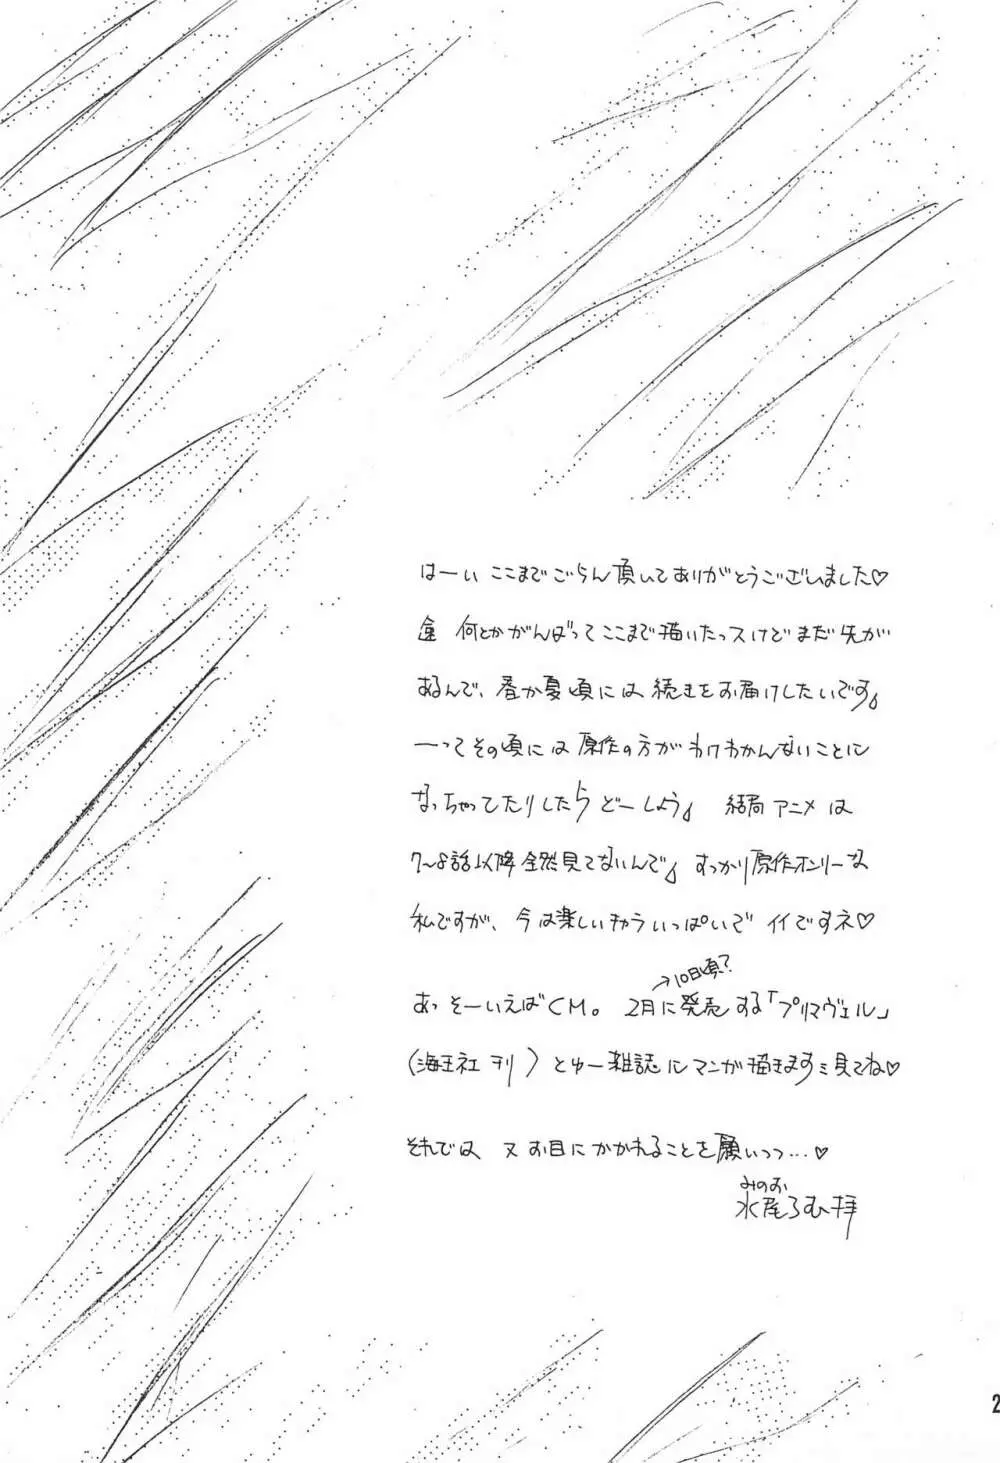 はーい ここまでごらん頂いてありがとうございました♡
何とかがんばってここまで描いたっスけどまだ先が
あるんで、春か夏頃には続きをお届けしたいです。
ーってその頃には原作の方がわけわかんないことに
なっちゃってたりしたらどーしよう。 結局アニメは
7〜8話以降全然見てないんで。 すっかり原作オンリーな
私ですが、今は楽しいキャラいっぱいで イイですネ♡
→10日頃?
あっ そーいえばCM。 2月に発売する「プリマヴェル」
(海王社刊) とゆー雑誌にマンガ描きます 見てね♡
それでは 又お目にかかれることを願いつつ…♡
みのお
水尾ろむ拝
2